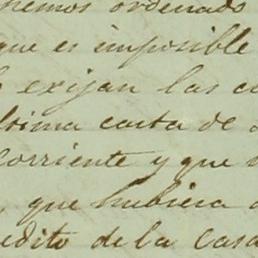 hemos ordenado
que es imposible
exijan las
ltima carta de
corriente y que
, que hubiera
edito de la Casa